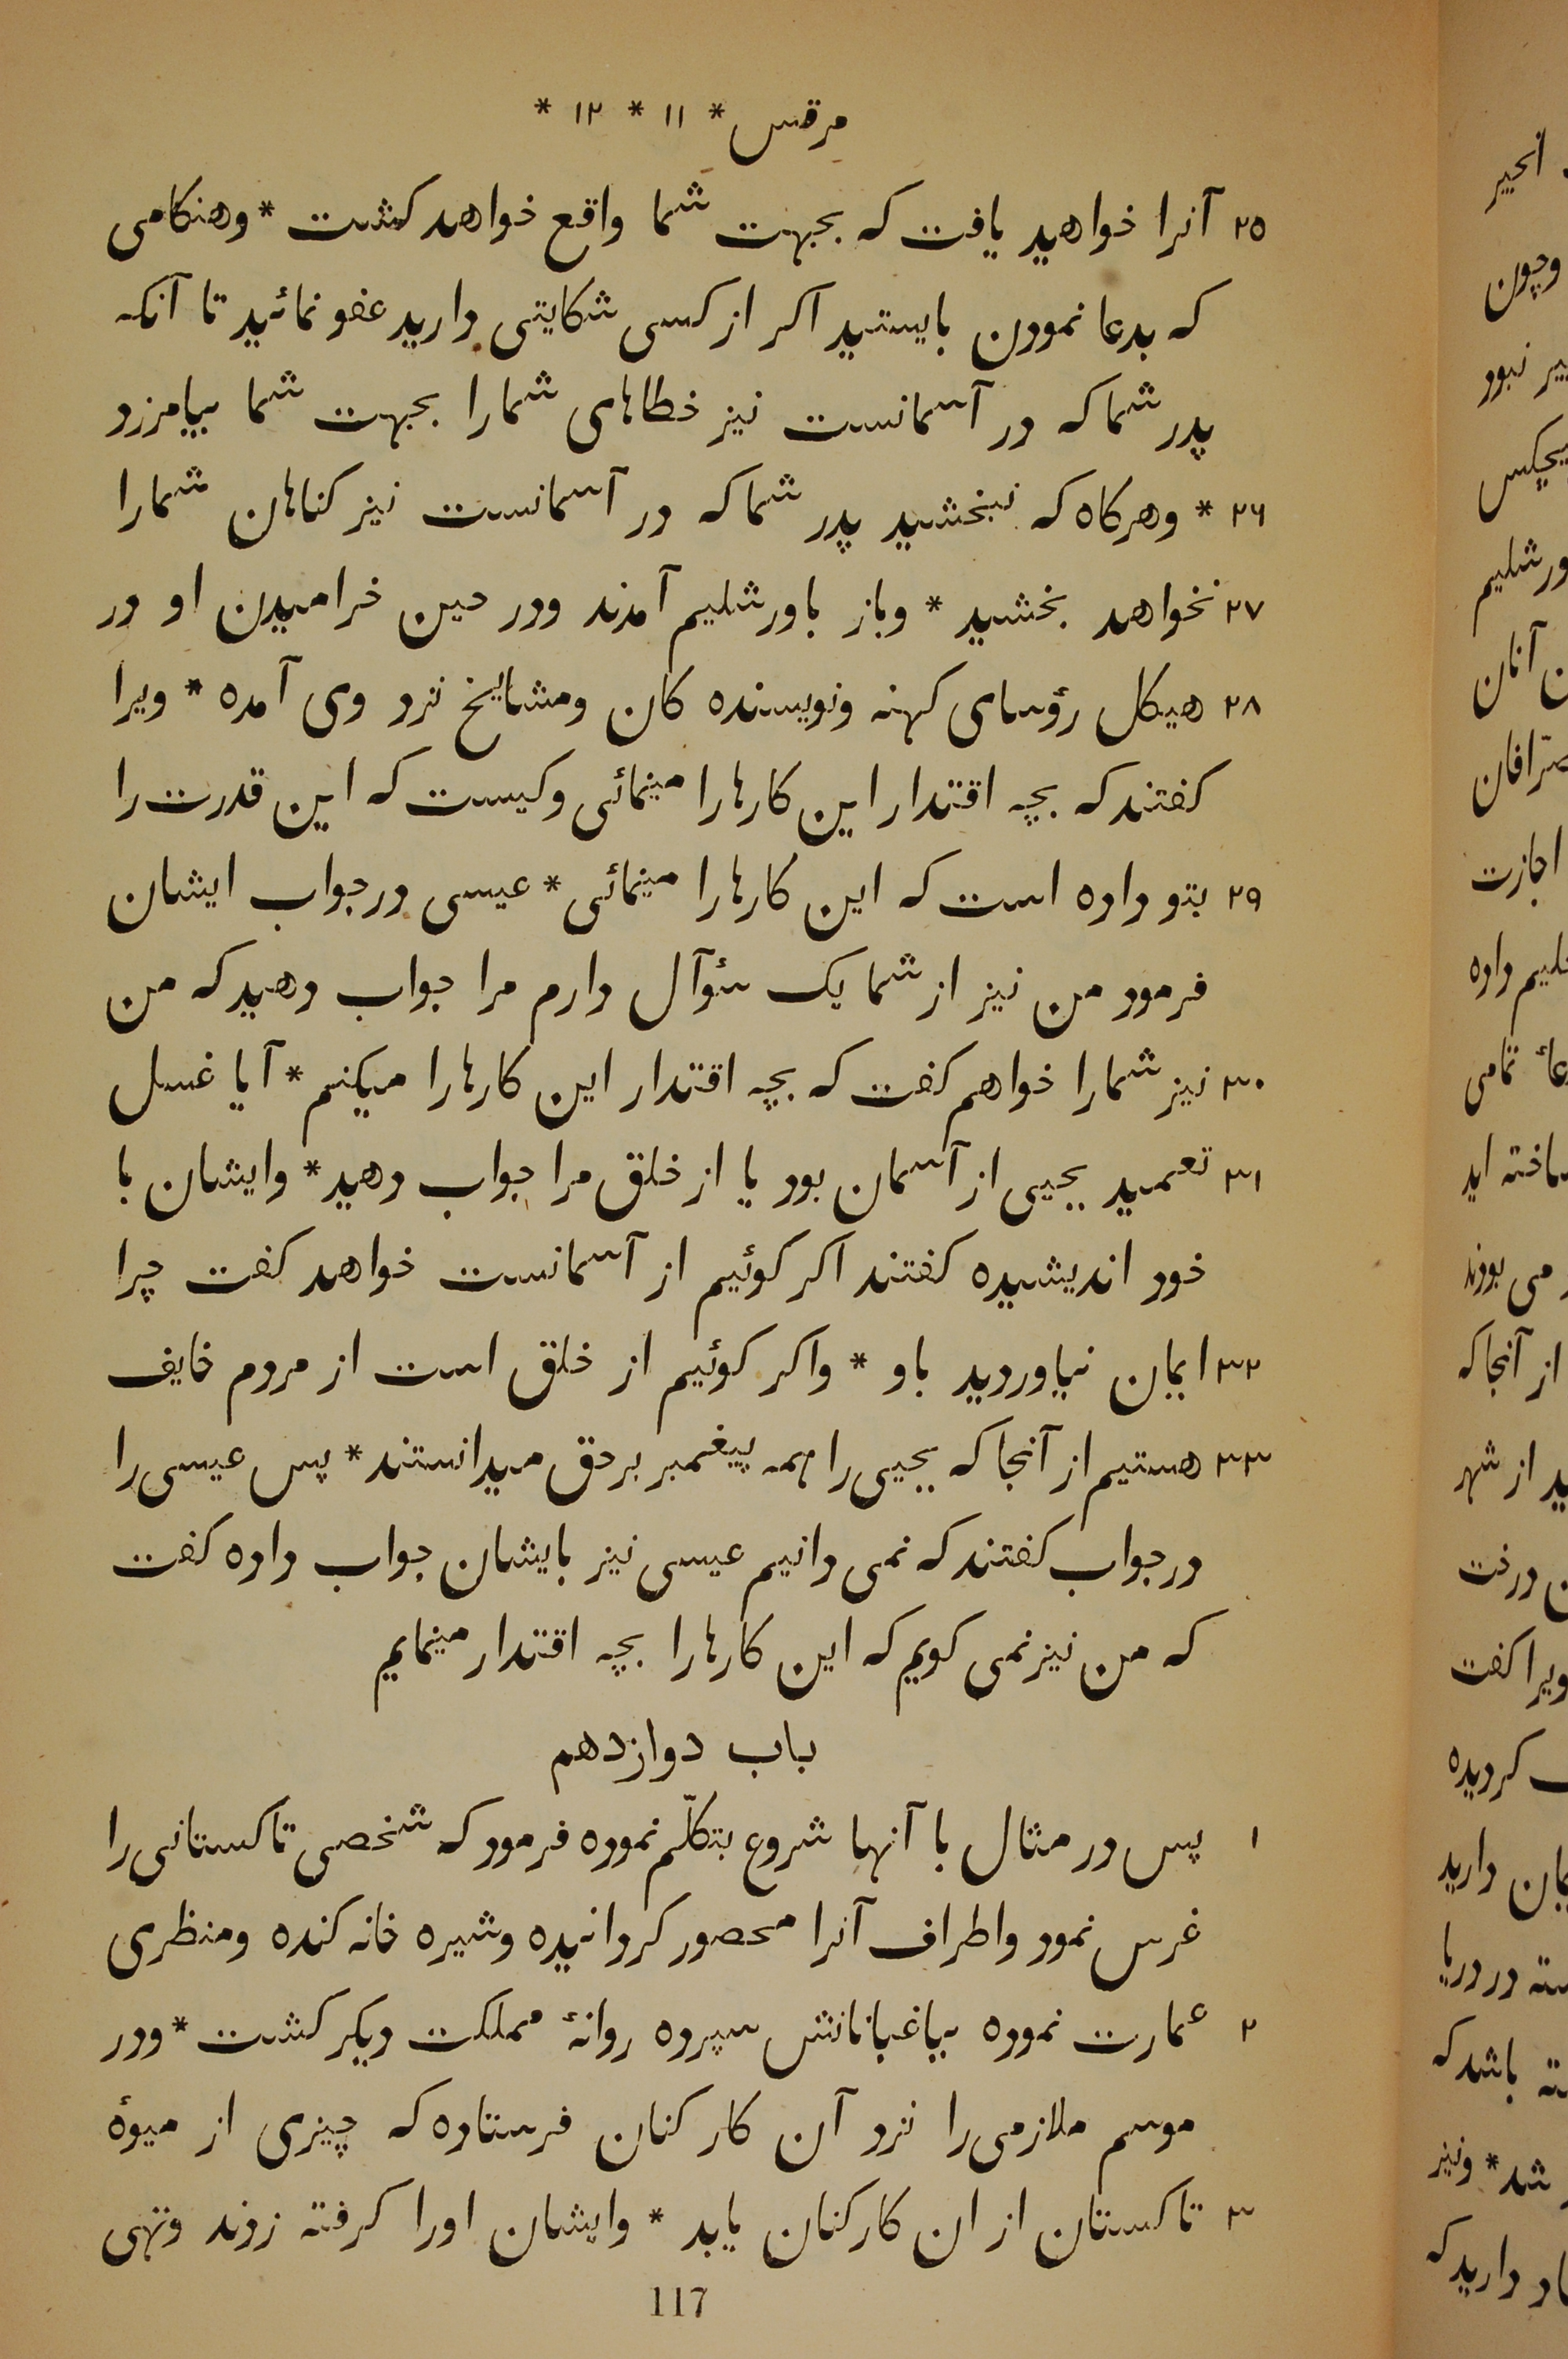 مرقس * ۱۱ * ۱۲ *
۲۵ آنرا خواهید یافت که بجهت شما واقع خواهد کشت * وهنکامی
که بدعا نمودن بایستید اکر از کسی شکایتی دارید عفو نمائید تا آنکه
پدر شما که در آسمانست نیز خطاهای شمارا بجهت شما بیامرزد
۲۶ * وهرکاه که نبخشید پدر شما که در آسمانست نیز کناهان شمارا
۲۷ نخواهد بخشید * وباز باورشلیم آمدند ودر حین خرامیدن او در
۲۸ هیکل رؤسای کهنه ونویسنده کان ومشایخ نزد وی آمده * ویرا
کفتند که بچه اقتدار این کارها را مینمائی وکیست که این قدرت را
۲۹ بتو داده است که این کارها را مینمائی * عیسی در جواب ایشان
فرمود من نیز از شما یک سئوآل دارم مرا جواب دهید که من
۳۰ نیز شمارا خواهم کفت که بچه اقتدار این کارها را میکنم * آیا غسل
۳۱ تعمید یحیی از آسمان بود یا از خلق مرا جواب دهید * وایشان با
خود اندیشیده کفتند اکر کوئیم از آسمانست خواهد کفت چرا
۳۲ ایمان نیاوردید باو * واکر کوئیم از خلق است از مردم خایف
۳۳ هستیم از آنجا که یحیی را همه پیغمبر برحق میدانستند * پس عیسی را
در جواب کفتند که نمی دانیم عیسی نیز بایشان جواب داده کفت
که من نیز نمی کویم که این کارها را بچه اقتدار مینمایم
باب دوازدهم
۱ پس در مثال با آنها شروع بتکلّم نموده فرمود که شخصی تاکستانی را
غرس نمود واطراف آنرا محصور کردانیده وشیره خانه کنده ومنظری
۲ عمارت نموده بباغبانانش سپرده روانهٔ مملکت دیکر کشت * ودر
موسم ملازمی را نزد آن کارکنان فرستاده که چیزی از میوهٔ
۳ تاکستان از ان کارکنان یابد * وایشان اورا کرفته زدند وتهی
117
انجیر
وچون
نبود
ورشلیم
آنان
صرّافان
اجازت
داده
تمامی
ساخته اید
می بودند
از آنجا که
از شهر
درخت
ویرا کفت
کردیده
دارید
در دریا
باشد که
شد * ونیز
دارید که